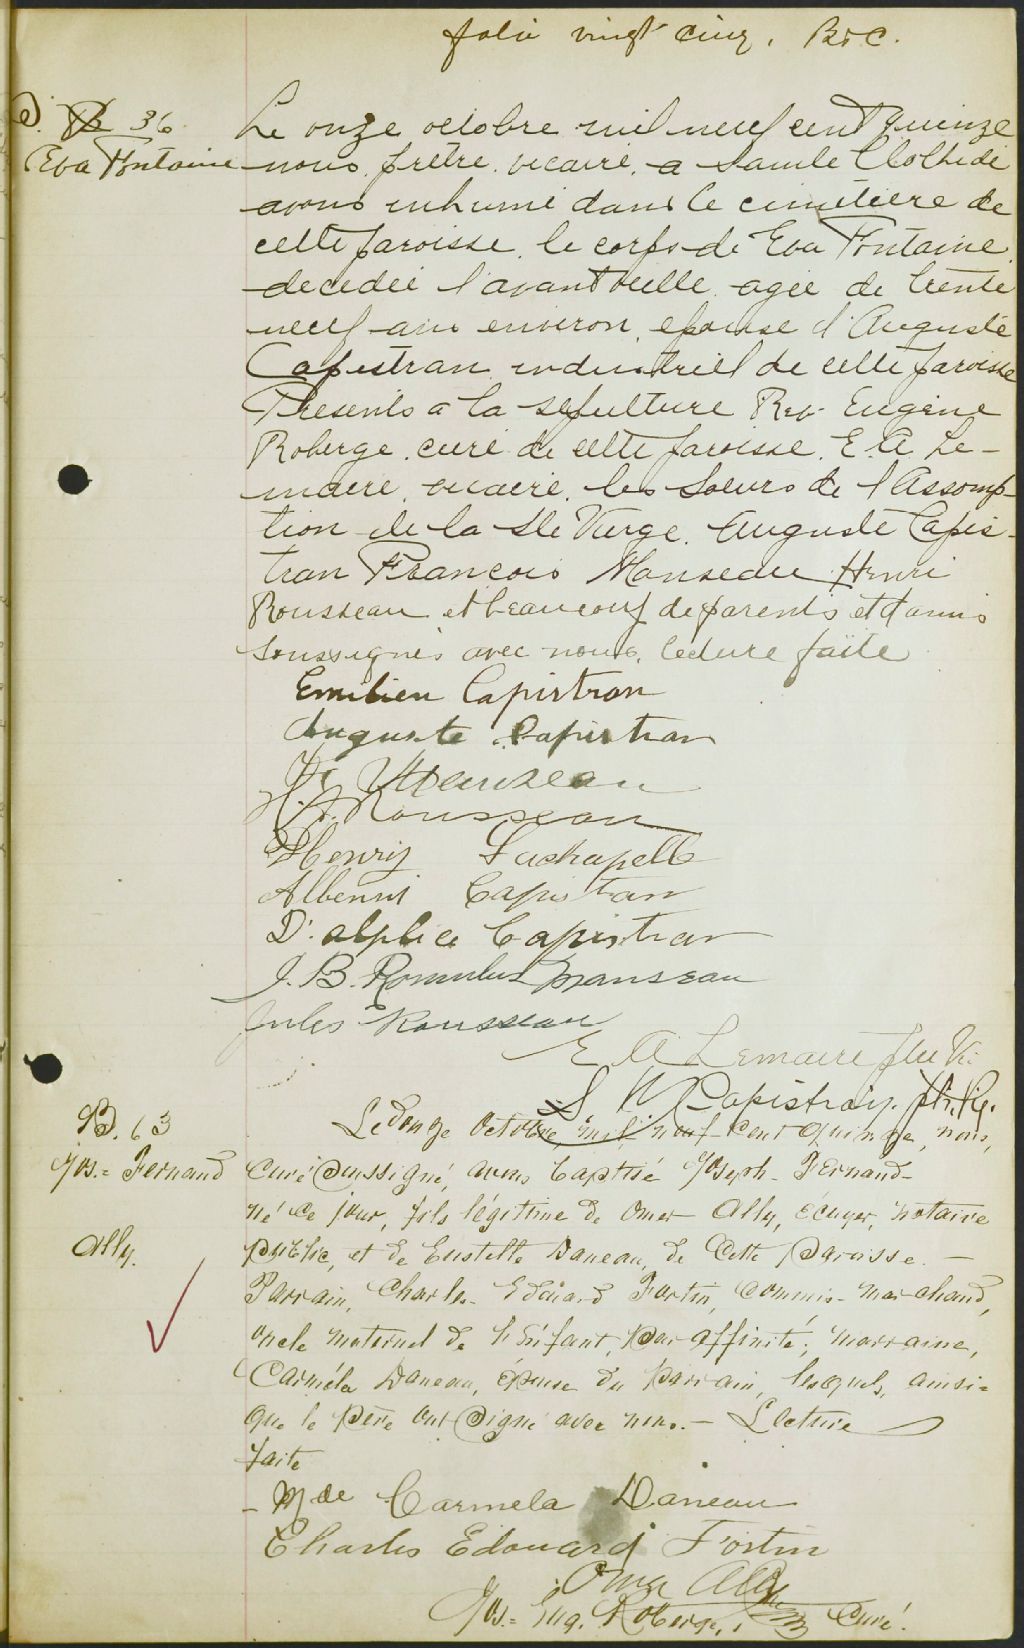 folio vingt cinq. B&C.
S. 36
Eva Fontaine
Le onze octobre mil neuf cent quinze
nous prêtre vicaire a Sainte Clothilde
avons inhumé dans le cimetière de
cette paroisse le corps de Eva Fontaine
decedée l'avant veille agée de trente
neuf ans environ, epouse d'Auguste
Capistran industriel de cette paroisse
Présents a la sépulture Rev. Eugène
Roberge curé de cette paroisse E. A. Le-
maire, vicaire, les Soeurs de l'Assomp-
tion de la Ste Vierge. Auguste Capis-
tran François Manseau Henri
Rousseau et beaucoup de parents et d'amis
soussignés avec nous. lecture faite
Emilien Capistran
Auguste Capistran
Manseau
H. A. Rousseau
Henry Lachapelle
Albenni Capistran
D. alphie Capistran
J. B. Romulus Manseau
Jules Rousseau
E A Lemaire ptre Vic
Capistran, ptr.
B. 63
Jos.= Fernand
Ally.
Le douze Octobre, mil neuf cent quinze, nous,
Curé soussigné, avons baptisé Joseph-Fernand-
né ce jour, fils légitime de Omer Ally, écuyer, notaire
public, et de Eustelle Daneau, de cette paroisse. —
Parrain, Charles-Edouard Fortin, commis-marchand,
oncle maternel de l'Enfant, par affinité; marraine,
Carméla Daneau, épouse du parrain, lesquels, ainsi=
que le père ont signé avec nous. — Lecture
faite
- Mde Carmela Daneau
Charles Edouard Fortin
Omer Ally
Jos.= Eug. Roberge, Curé.